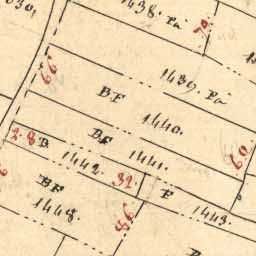 1438. Pa
70.
66
1439. Pa
BF
1440.
28
B
BF
1441.
60
1442.
32.
BF
F
1443.
1448.
56